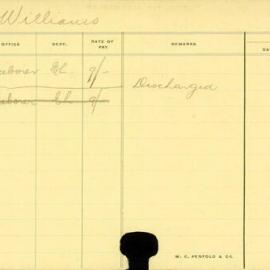 Williams
OFFICE DEPT. RATE OF PAY. REMARKS.
Laborer Cl. 9/- Discharged
Laborer Cl. 9/-
W. C. PENFOLD & CO.